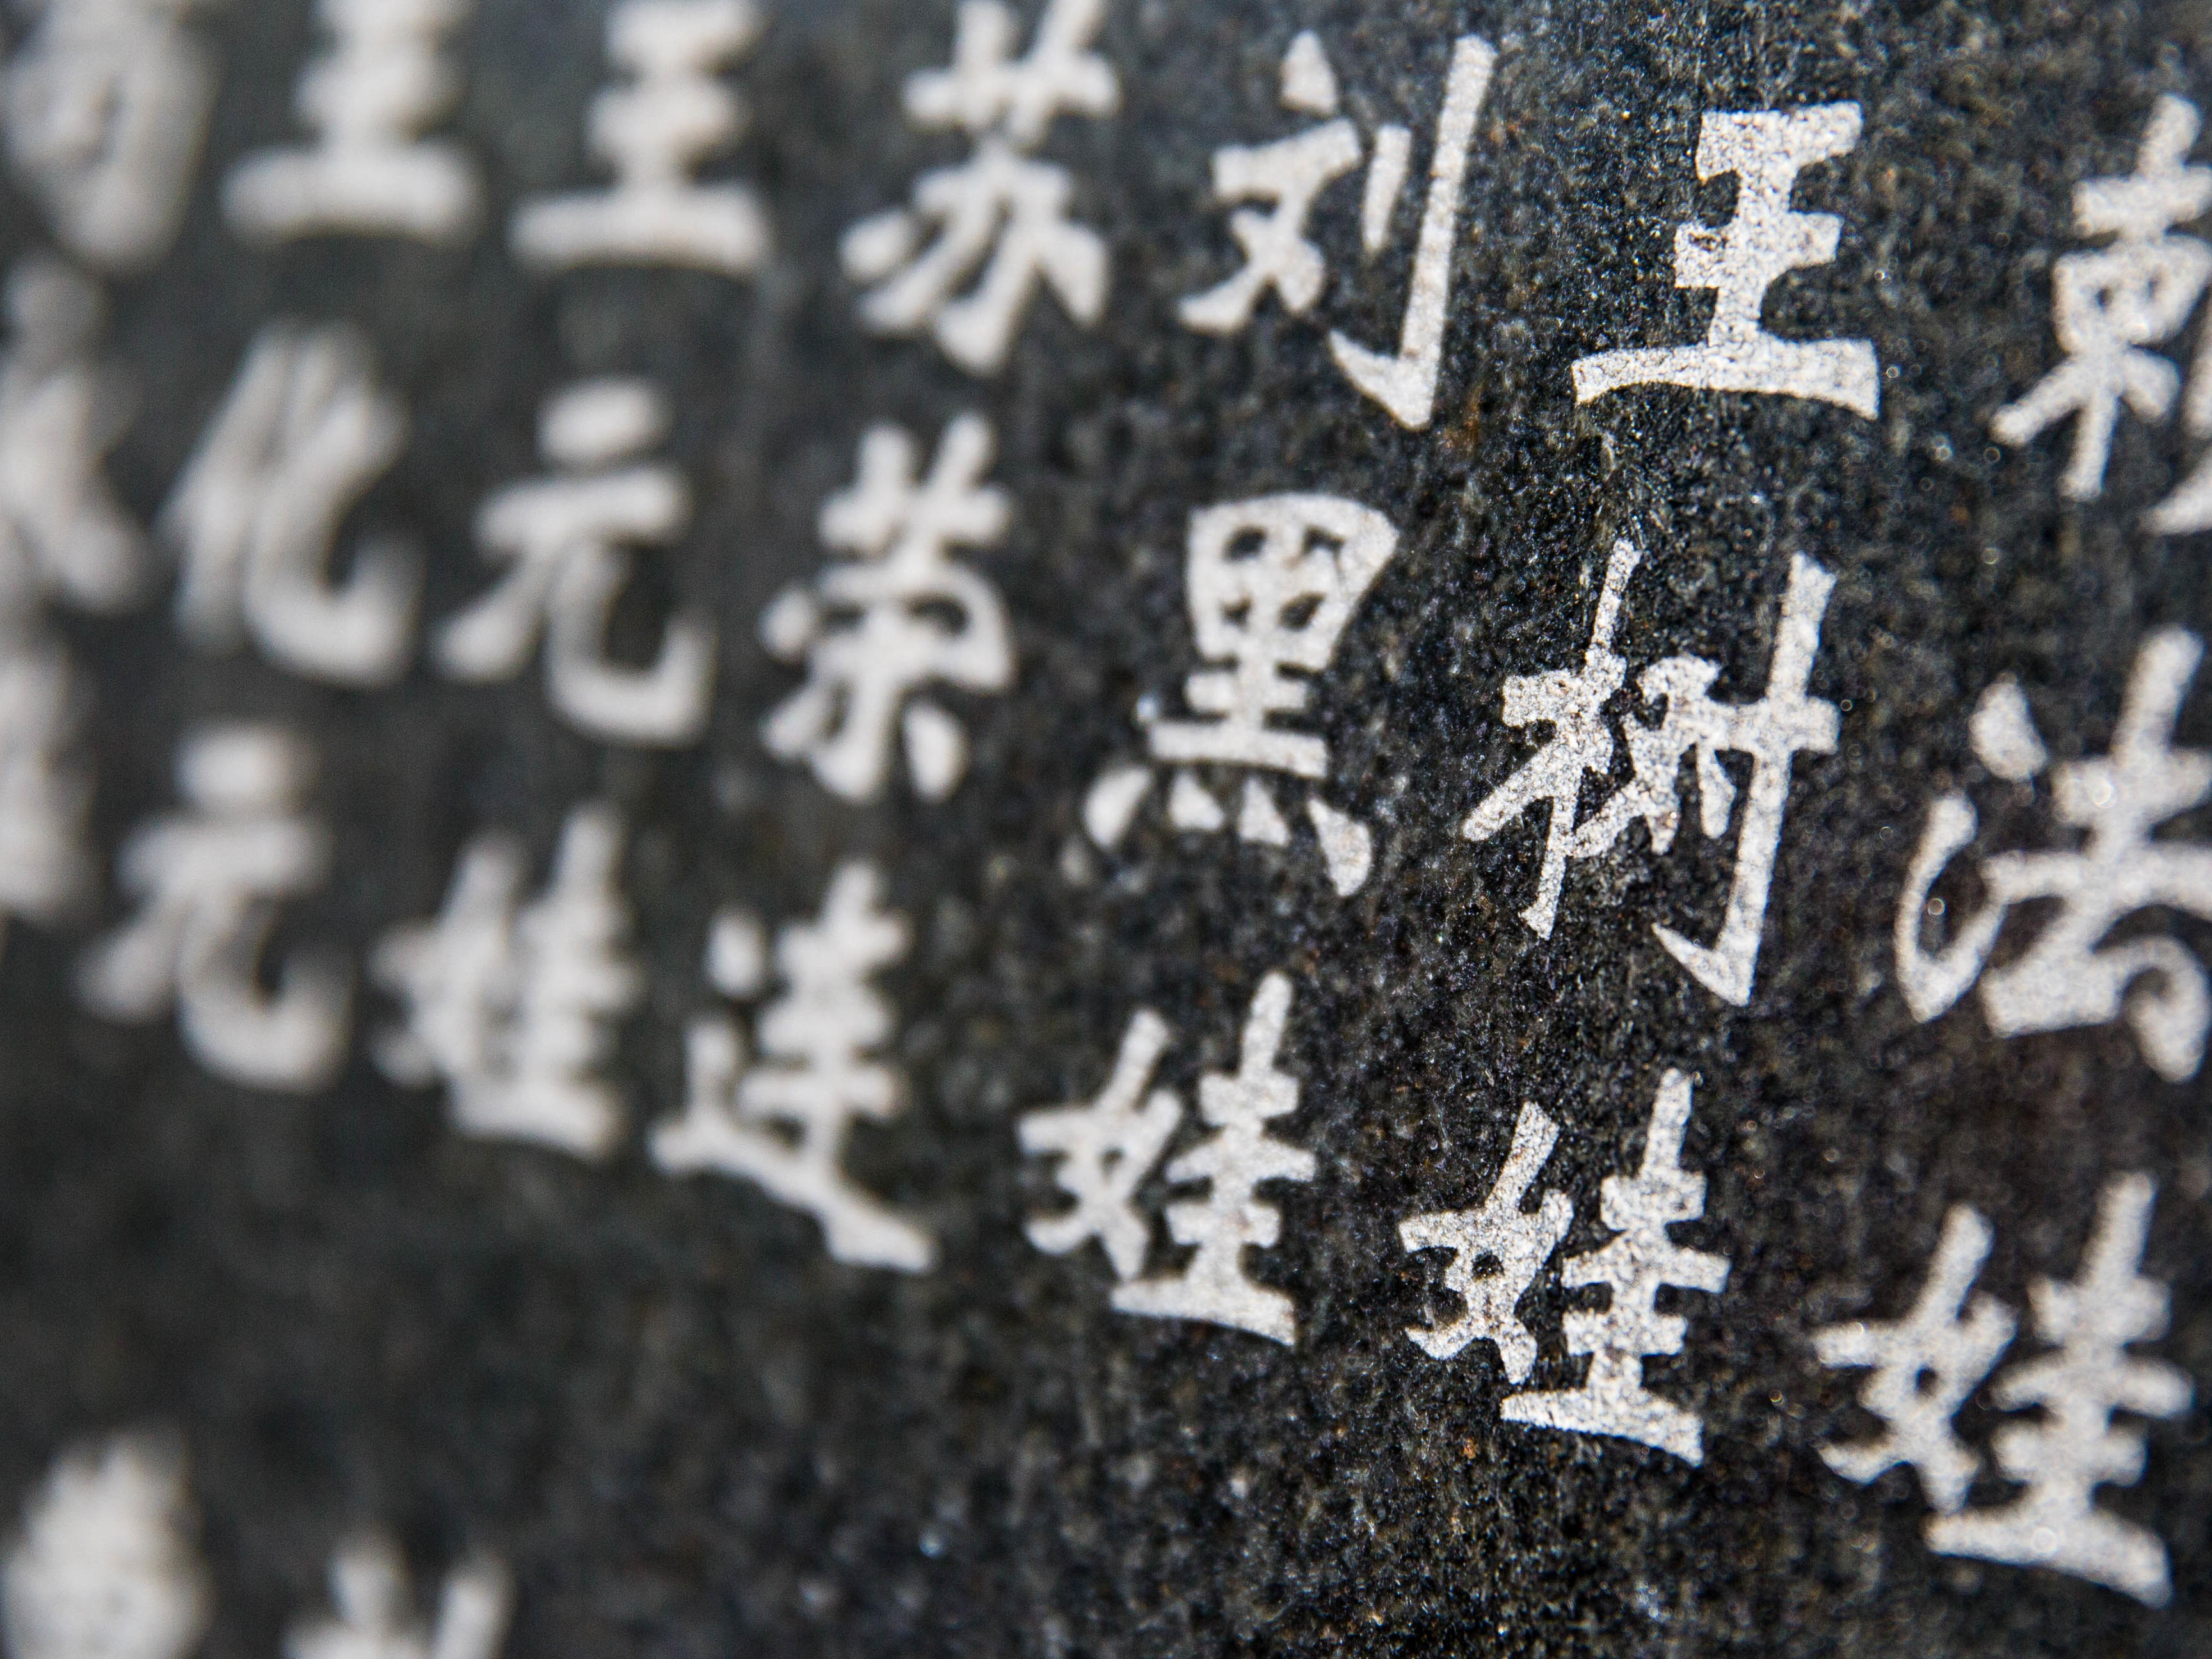 法娃
王树娃
刘黑娃
苏荣连
王元娃
王化元